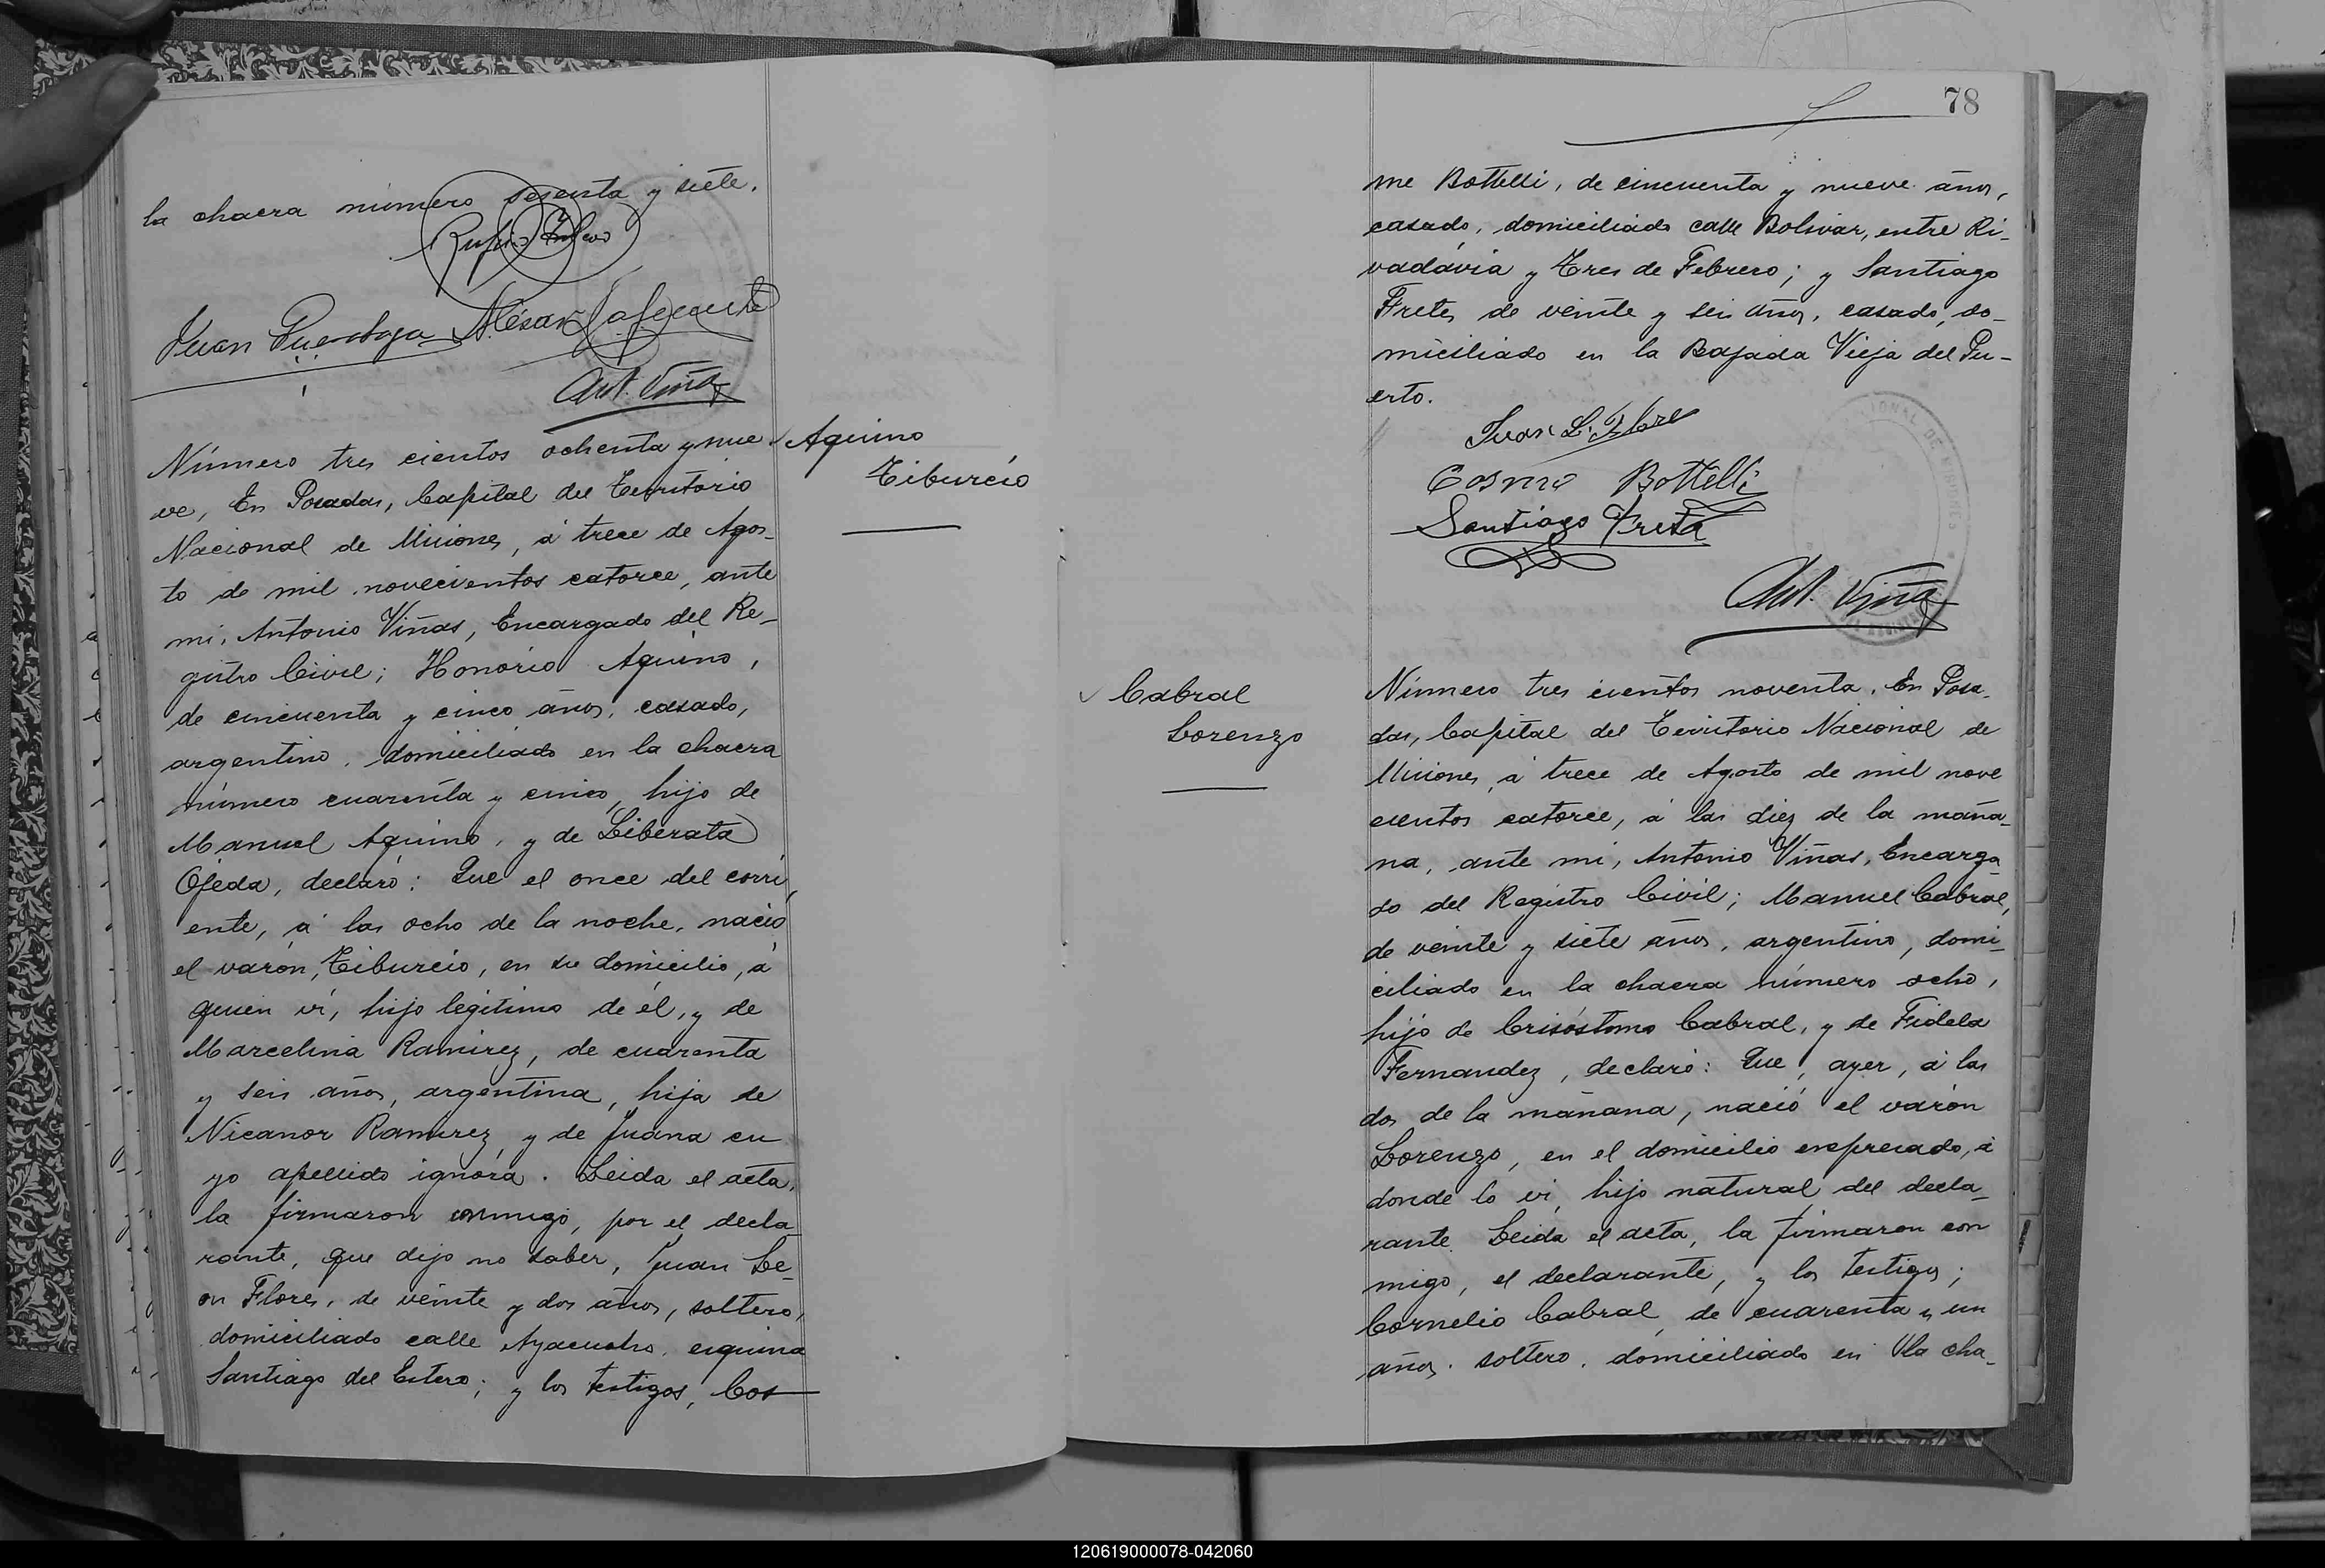 la chacra número sesenta y siete.
Juan
Ant. Viñas
Número tres cientos ochenta y nue
ve, En Posadas, Capital del Territorio
Nacional de Misiones, á trece de Agos-
to de mil novecientos catorce, ante
mi, Antonio Viñas, Encargado del Re-
gistro Civil; Honorio Aquino,
de cincuenta y cinco años, casado,
argentino, domiciliado en la chacra
número cuarenta y cinco, hijo de
Manuel Aquino, y de Liberata
Ojeda, declaró: Que el once del corri
ente, á las ocho de la noche, nació
el varón, Tiburcio, en su domicilio, á
quien vi, hijo legítimo de él, y de
Marcelina Ramirez, de cuarenta
y seis años, argentina, hija de
Nicanor Ramirez y de Juana cu
yo apellido ignora. Leida el acta,
la firmaron conmigo, por el decla
rante, que dijo no saber, Juan Le-
on Flores, de veinte y dos años, soltero,
domiciliado calle Ayacucho, esquina
Santiago del Estero; y los testigos, Cos
Aquino
Tiburcio
78
me Bottelli, de cincuenta y nueve años,
casado, domiciliado calle Bolivar, entre Ri-
vadavia y Tres de Febrero; y Santiago
Fretes, de veinte y seis años, casado, do-
miciliado en la Bajada Vieja del Pu-
erto.
Juan L. Flores
Cosme Bottelli
Santiago Freta
Ant. Viñas
Cabral
Lorenzo
Número tres cientos noventa, En Posa-
das, Capital del Territorio Nacional de
Misiones, á trece de Agosto de mil nove
cientos catorce, á las diez de la maña-
na, ante mi, Antonio Viñas, Encarga
do del Registro Civil; Manuel Cabral,
de veinte y siete años, argentino, domi-
ciliado en la chacra número ocho,
hijo de Crisóstomo Cabral, y de Fidela
Fernandez, declaró: Que, ayer, á las
dos de la mañana, nació el varón
Lorenzo, en el domicilio expresado, á
donde lo vi, hijo natural del decla-
rante. Leida el acta, la firmaron con
migo, el declarante, y los testigos;
Cornelio Cabral, de cuarenta y un
años, soltero, domiciliado en la cha-
120619000078-042060